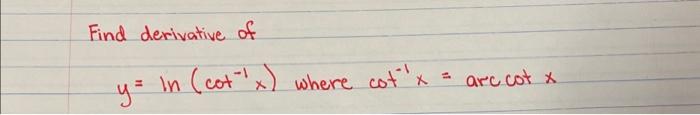 Find derivative of
y = ln (cot⁻¹x) where cot⁻¹x = arc cot x